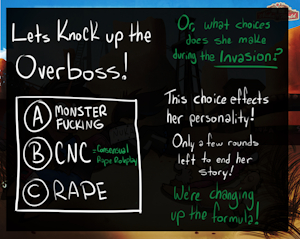 Lets Knock up the
Overboss!
A MONSTER
FUCKING
B CNC =Consensual
Rape Roleplay
C RAPE
Or, what choices
does she make
during the Invasion?
This choice effects
her personality!
Only a few rounds
left to end her
story!
We're changing
up the formula!